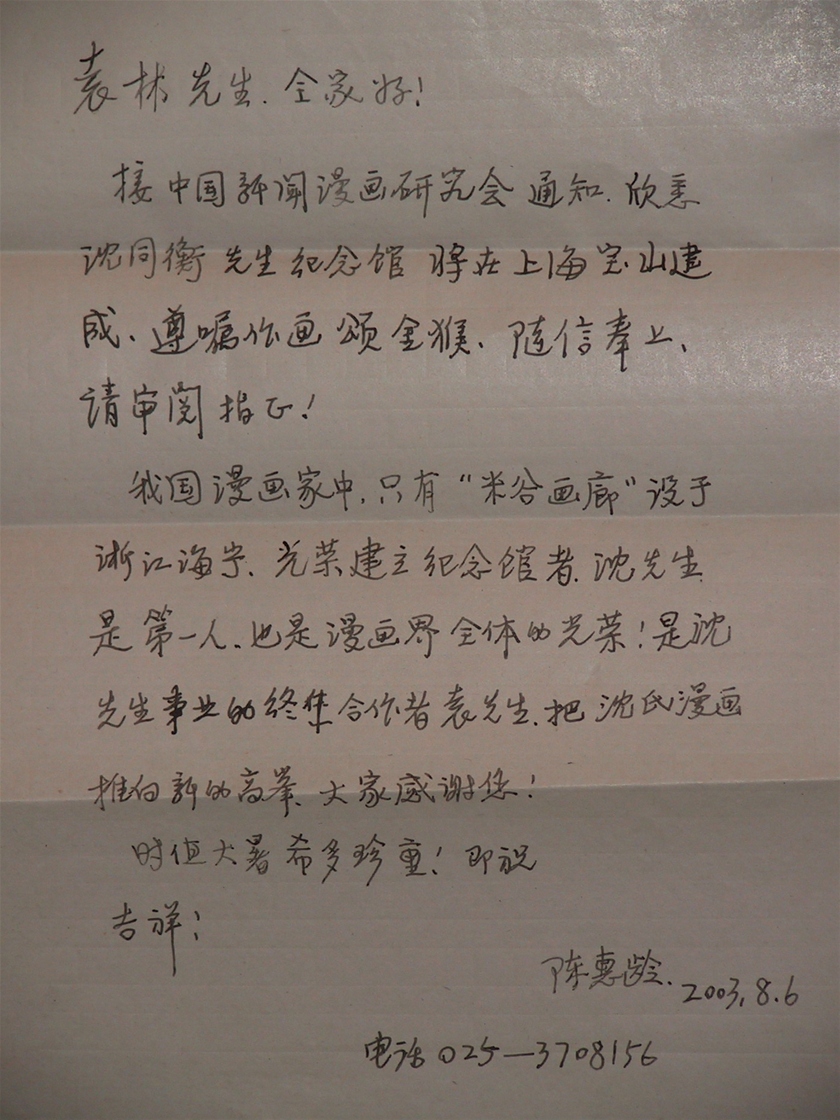 袁林先生.全家好!
接中国新闻漫画研究会通知.欣悉
沈同衡先生纪念馆将在上海宝山建
成、遵嘱作画颂金猴、随信奉上、
请审阅指正!
我国漫画家中,只有“米谷画廊”设于
浙江海宁、光荣建立纪念馆者.沈先生
是第一人、也是漫画界全体的光荣!是沈
先生事业的终 合作者袁先生.把沈氏漫画
推向新的高峯、大家感谢您!
时值大暑希多珍重!即祝
吉祥!
陈惠龄.2003.8.6
电话025—3708156